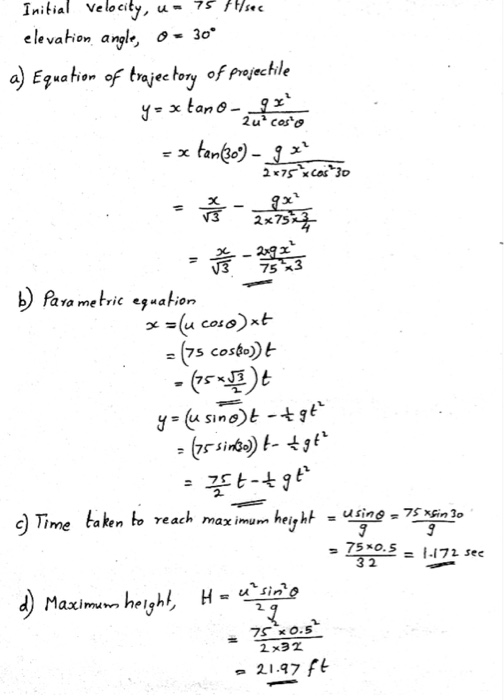 Initial velocity, u = 75 ft/sec
elevation angle, θ = 30°
a) Equation of trajectory of projectile
y = x tanθ - gx²/2u²cos²θ
= x tan(30°) - gx²/2×75²×cos²30
= x/√3 - gx²/2×75²×3/4
= x/√3 - 2×gx²/75²×3
b) Parametric equation
x = (u cosθ)×t
= (75 cos(30))t
= (75×√3/2)t
y = (u sinθ)t - ½gt²
= (75 sin(30))t - ½gt²
= 75/2 t - ½gt²
c) Time taken to reach maximum height = u sinθ/g = 75×sin30/g
= 75×0.5/32 = 1.172 sec
d) Maximum height, H = u²sin²θ/2g
= 75²×0.5²/2×32
= 21.97 ft